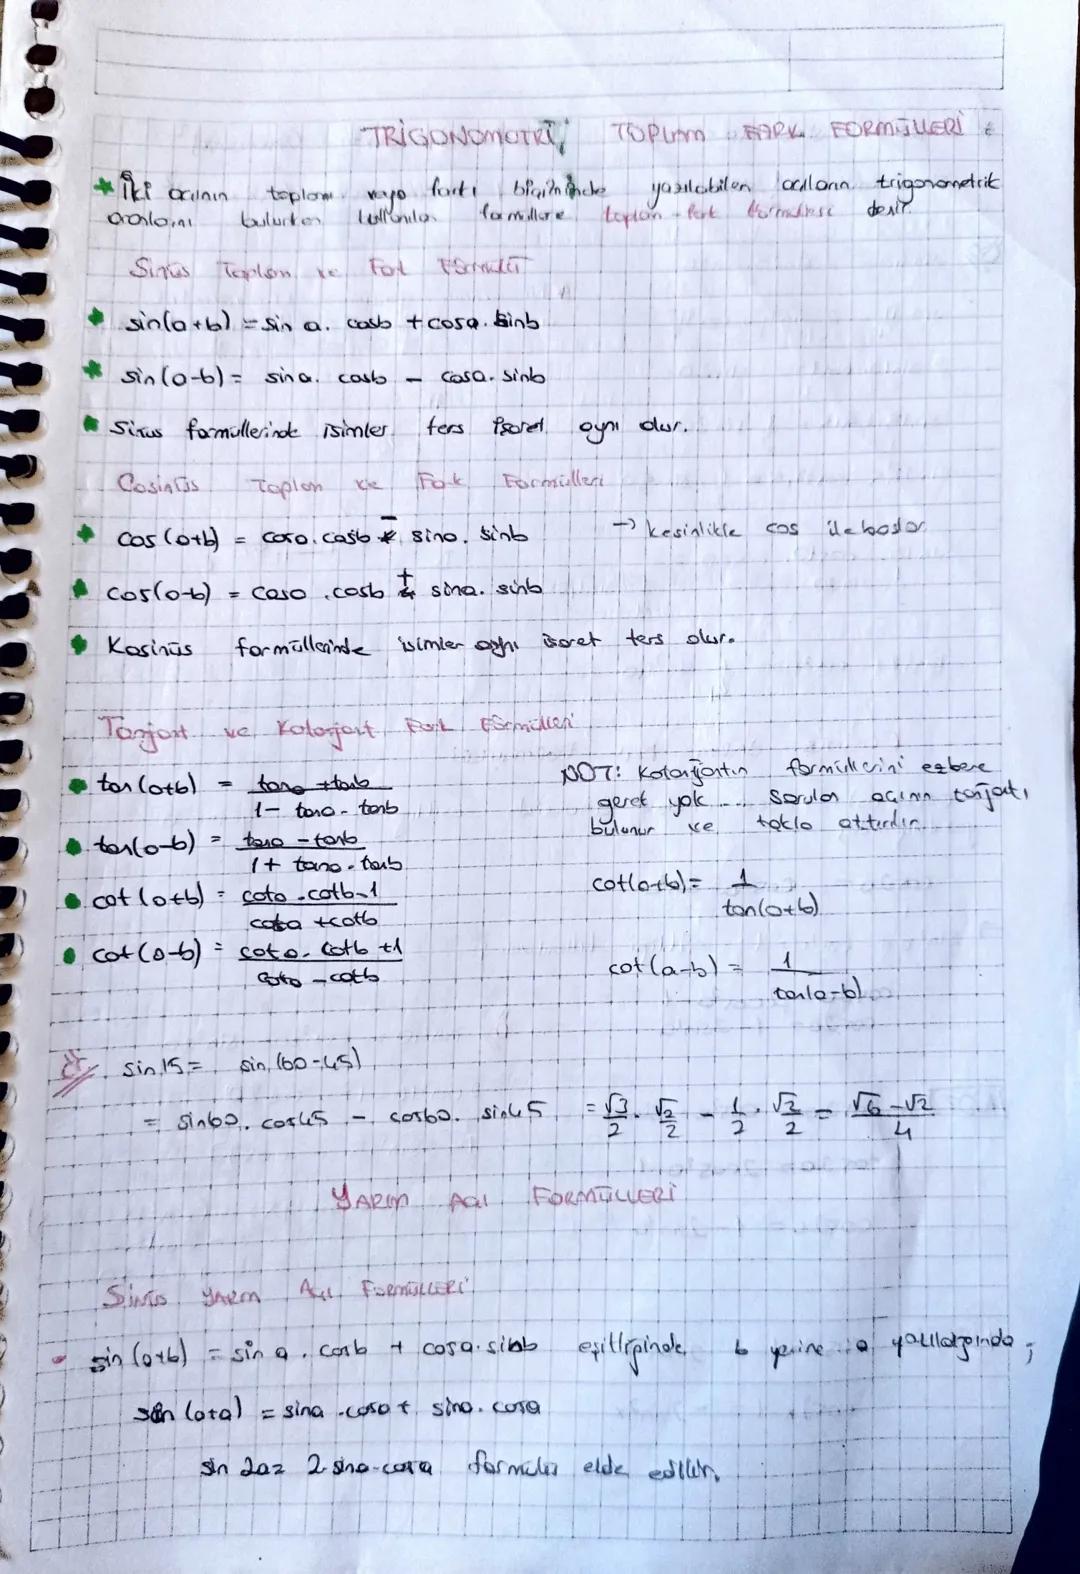 TRİGONOMOTRİ, TOPLAM FARK FORMÜLLERİ :
* İki açının toplamı veya farkı biçiminde yazılabilen açıların trigonometrik
oranlarını bulurken kullanılan formüllere toplam-fark formülleri denir.
Sinüs Toplam ve Fark Formülü
* sin(a+b) = sin a. cosb + cosa. sinb
* sin(a-b) = sina. cosb - cosa. sinb
* Sinüs formüllerinde isimler ters işaret aynı olur.
Cosinüs Toplam ve Fark Formülleri
* cos(a+b) = cosa.cosb - sina. sinb → kesinlikle cos ile başlar
* cos(a-b) = cosa .cosb + sina. sinb
* Kosinüs formüllerinde isimler aynı işaret ters olur.
Tanjant ve Kotanjant Fark Formülleri
• tan(a+b) = tana + tanb / 1 - tana . tanb
• tan(a-b) = tana - tanb / 1 + tana . tanb
• cot(a+b) = cota . cotb - 1 / cota + cotb
• cot(a-b) = cota . cotb + 1 / cota - cotb
NOT: Kotanjantın formüllerini ezbere
gerek yok ... Sorulan açının tanjantı
bulunur ve takla attırılır.
cot(a+b) = 1 / tan(a+b)
cot(a-b) = 1 / tan(a-b)
sin 15 = sin (60-45)
= sin60. cos45 - cos60. sin45 = √3/2 . √2/2 - 1/2 . √2/2 = √6-√2 / 4
YARIM AÇI FORMÜLLERİ
Sinüs YARIM AÇI FORMÜLLERİ
• sin (a+b) = sin a . cosb + cosa.sinb eşitliğinde b yerine a yazıldığında ;
sin (a+a) = sina .cosa + sina. cosa
sin 2a = 2 sina.cosa formülü elde edilir.